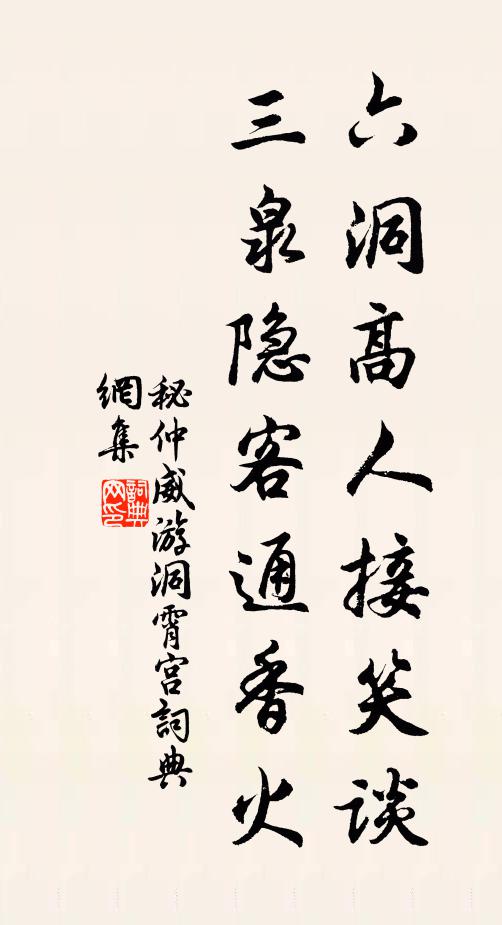 六洞高人接笑谈
三泉隐客通香火
秘仲威游洞霄宫詞典
網集
詞典
网印